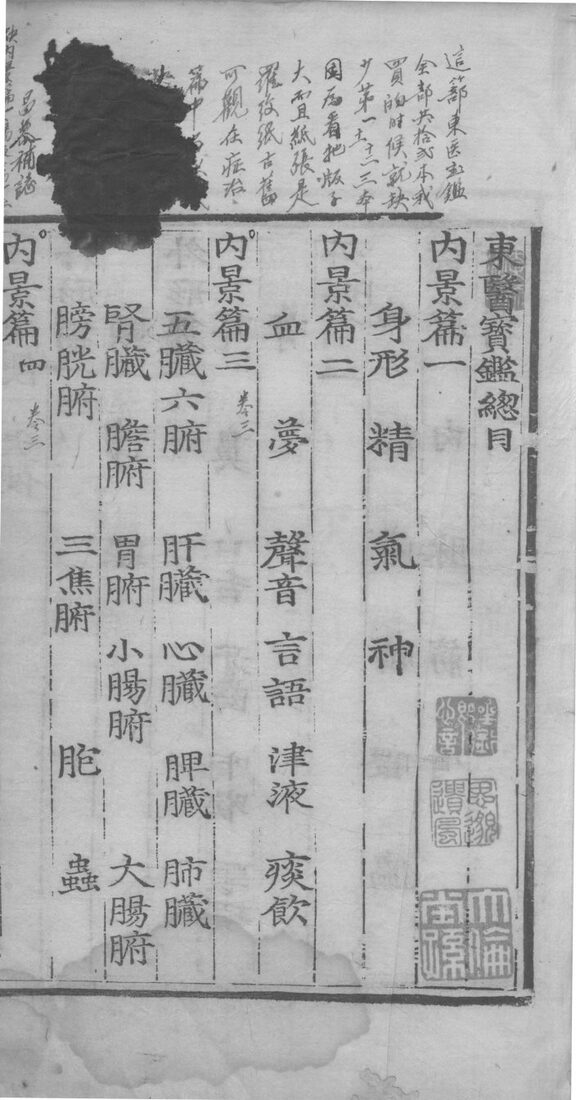 這部東医宝鑑
全部共拾弍本我
買的时候就缺
少第一十二三本
因为看把版子
大而且紙張是
可觀在症治
東醫寶鑑總目
內景篇一
身形 精 氣 神
內景篇二
血 夢 聲音 言語 津液 痰飲
內景篇三 卷三
五臟六腑 肝臟 心臟 脾臟 肺臟
腎臟 膽腑 胃腑 小腸腑 大腸腑
膀胱腑 三焦腑 胞 蟲
內景篇四 卷三